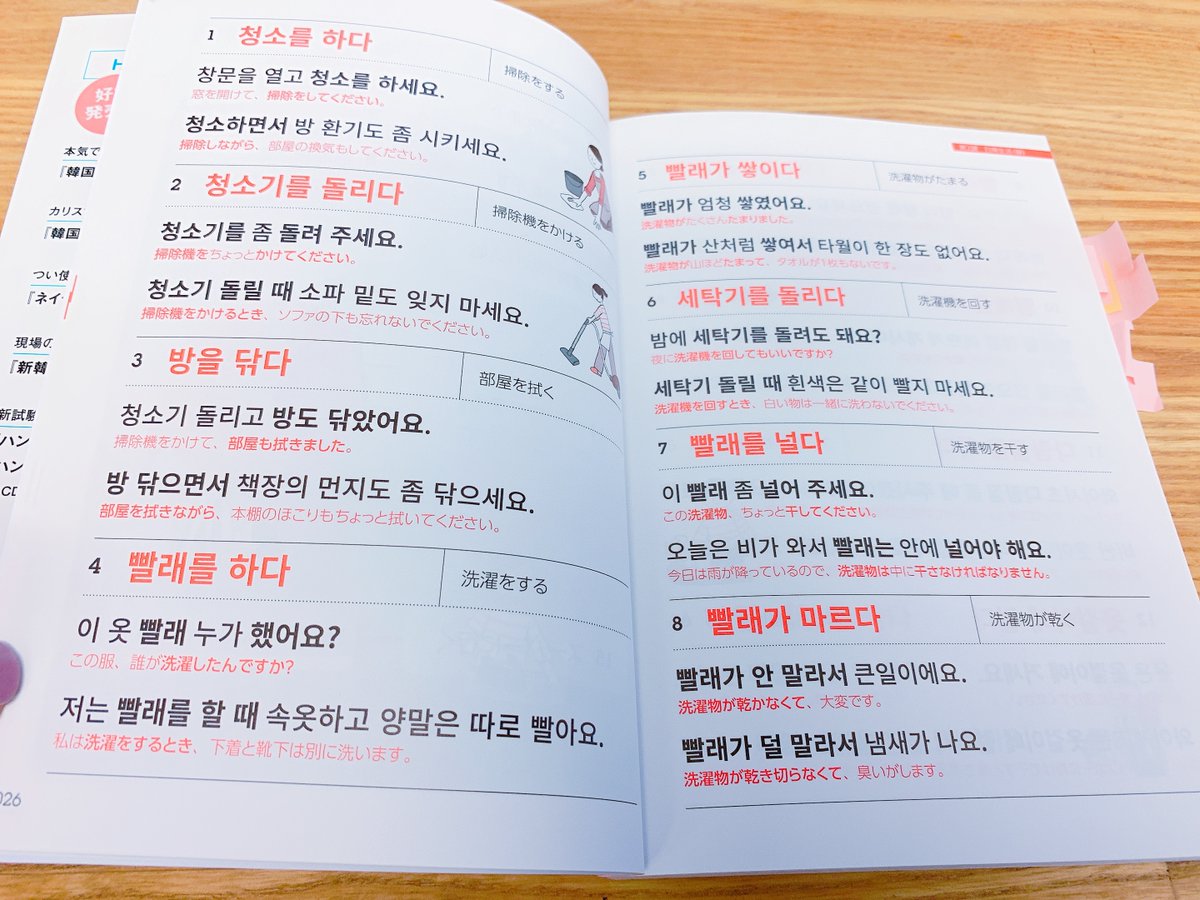 本気で
『韓国
カリス
『韓国
つい使
『ネイ
現場の
『新韓
新試験
ハン
ハン
CD
1 청소를 하다
掃除をする
창문을 열고 청소를 하세요.
窓を開けて、掃除をしてください。
청소하면서 방 환기도 좀 시키세요.
掃除しながら、部屋の換気もしてください。
2 청소기를 돌리다
掃除機をかける
청소기를 좀 돌려 주세요.
掃除機をちょっとかけてください。
청소기 돌릴 때 소파 밑도 잊지 마세요.
掃除機をかけるとき、ソファの下も忘れないでください。
3 방을 닦다
部屋を拭く
청소기 돌리고 방도 닦았어요.
掃除機をかけて、部屋も拭きました。
방 닦으면서 책장의 먼지도 좀 닦으세요.
部屋を拭きながら、本棚のほこりもちょっと拭いてください。
4 빨래를 하다
洗濯をする
이 옷 빨래 누가 했어요?
この服、誰が洗濯したんですか?
저는 빨래를 할 때 속옷하고 양말은 따로 빨아요.
私は洗濯をするとき、下着と靴下は別に洗います。
026
5 빨래가 쌓이다
洗濯物がたまる
빨래가 엄청 쌓였어요.
洗濯物がたくさんたまりました。
빨래가 산처럼 쌓여서 타월이 한 장도 없어요.
洗濯物が山ほどたまって、タオルが1枚もないです。
6 세탁기를 돌리다
洗濯機を回す
밤에 세탁기를 돌려도 돼요?
夜に洗濯機を回してもいいですか?
세탁기 돌릴 때 흰색은 같이 빨지 마세요.
洗濯機を回すとき、白い物は一緒に洗わないでください。
7 빨래를 널다
洗濯物を干す
이 빨래 좀 널어 주세요.
この洗濯物、ちょっと干してください。
오늘은 비가 와서 빨래는 안에 널어야 해요.
今日は雨が降っているので、洗濯物は中に干さなければなりません。
8 빨래가 마르다
洗濯物が乾く
빨래가 안 말라서 큰일이에요.
洗濯物が乾かなくて、大変です。
빨래가 덜 말라서 냄새가 나요.
洗濯物が乾き切らなくて、臭いがします。